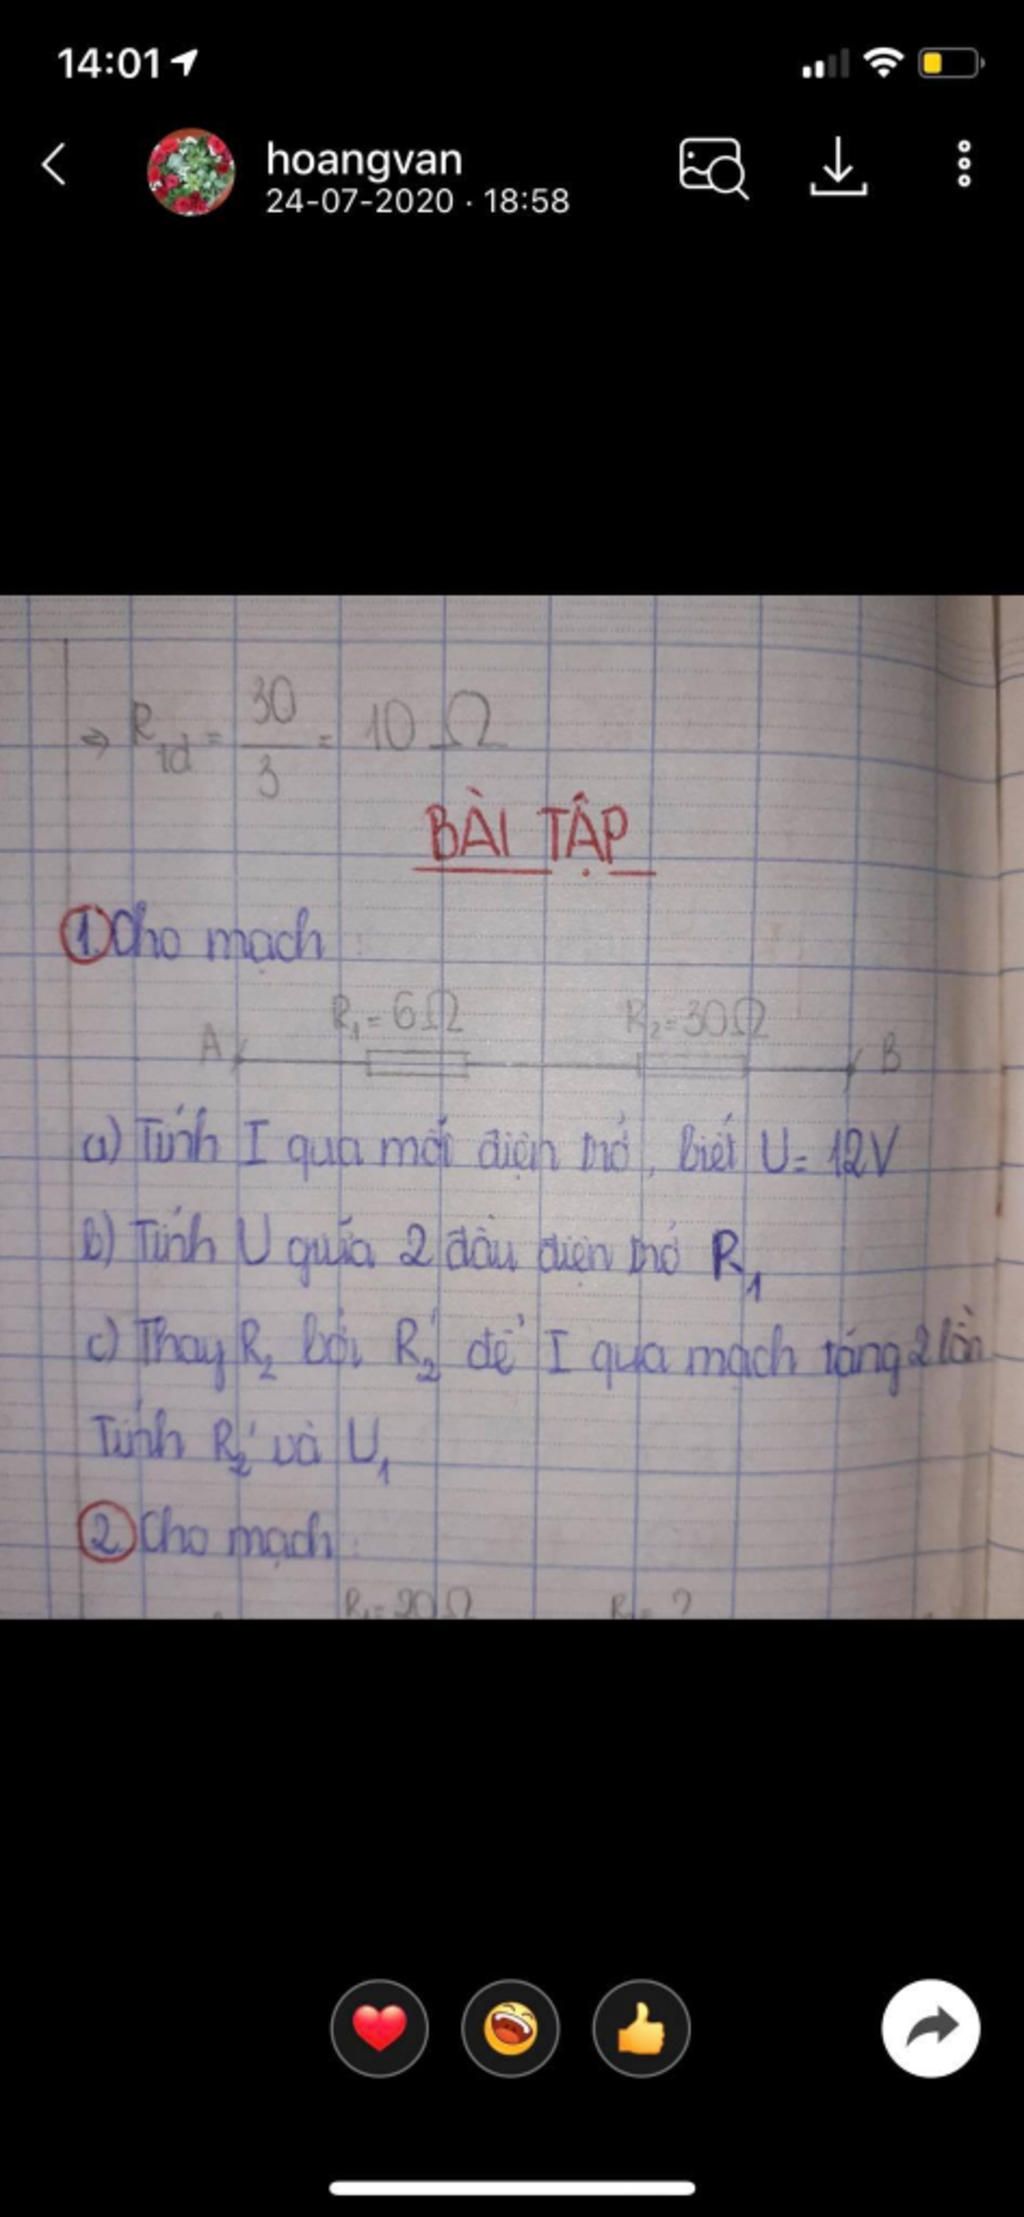 14:01
hoangvan
24-07-2020 · 18:58
⇒ Rtd = 30/3 = 10 Ω
BÀI TẬP
① Cho mạch:
R₁=6Ω R₂=30Ω
A B
a) Tính I qua mỗi điện trở, biết U= 12V
b) Tính U giữa 2 đầu điện trở R₁
c) Thay R₂ bởi R₂' để I qua mạch tăng 2 lần
Tính R₂' và U₁
② Cho mạch:
R₁=20Ω R₂= ?